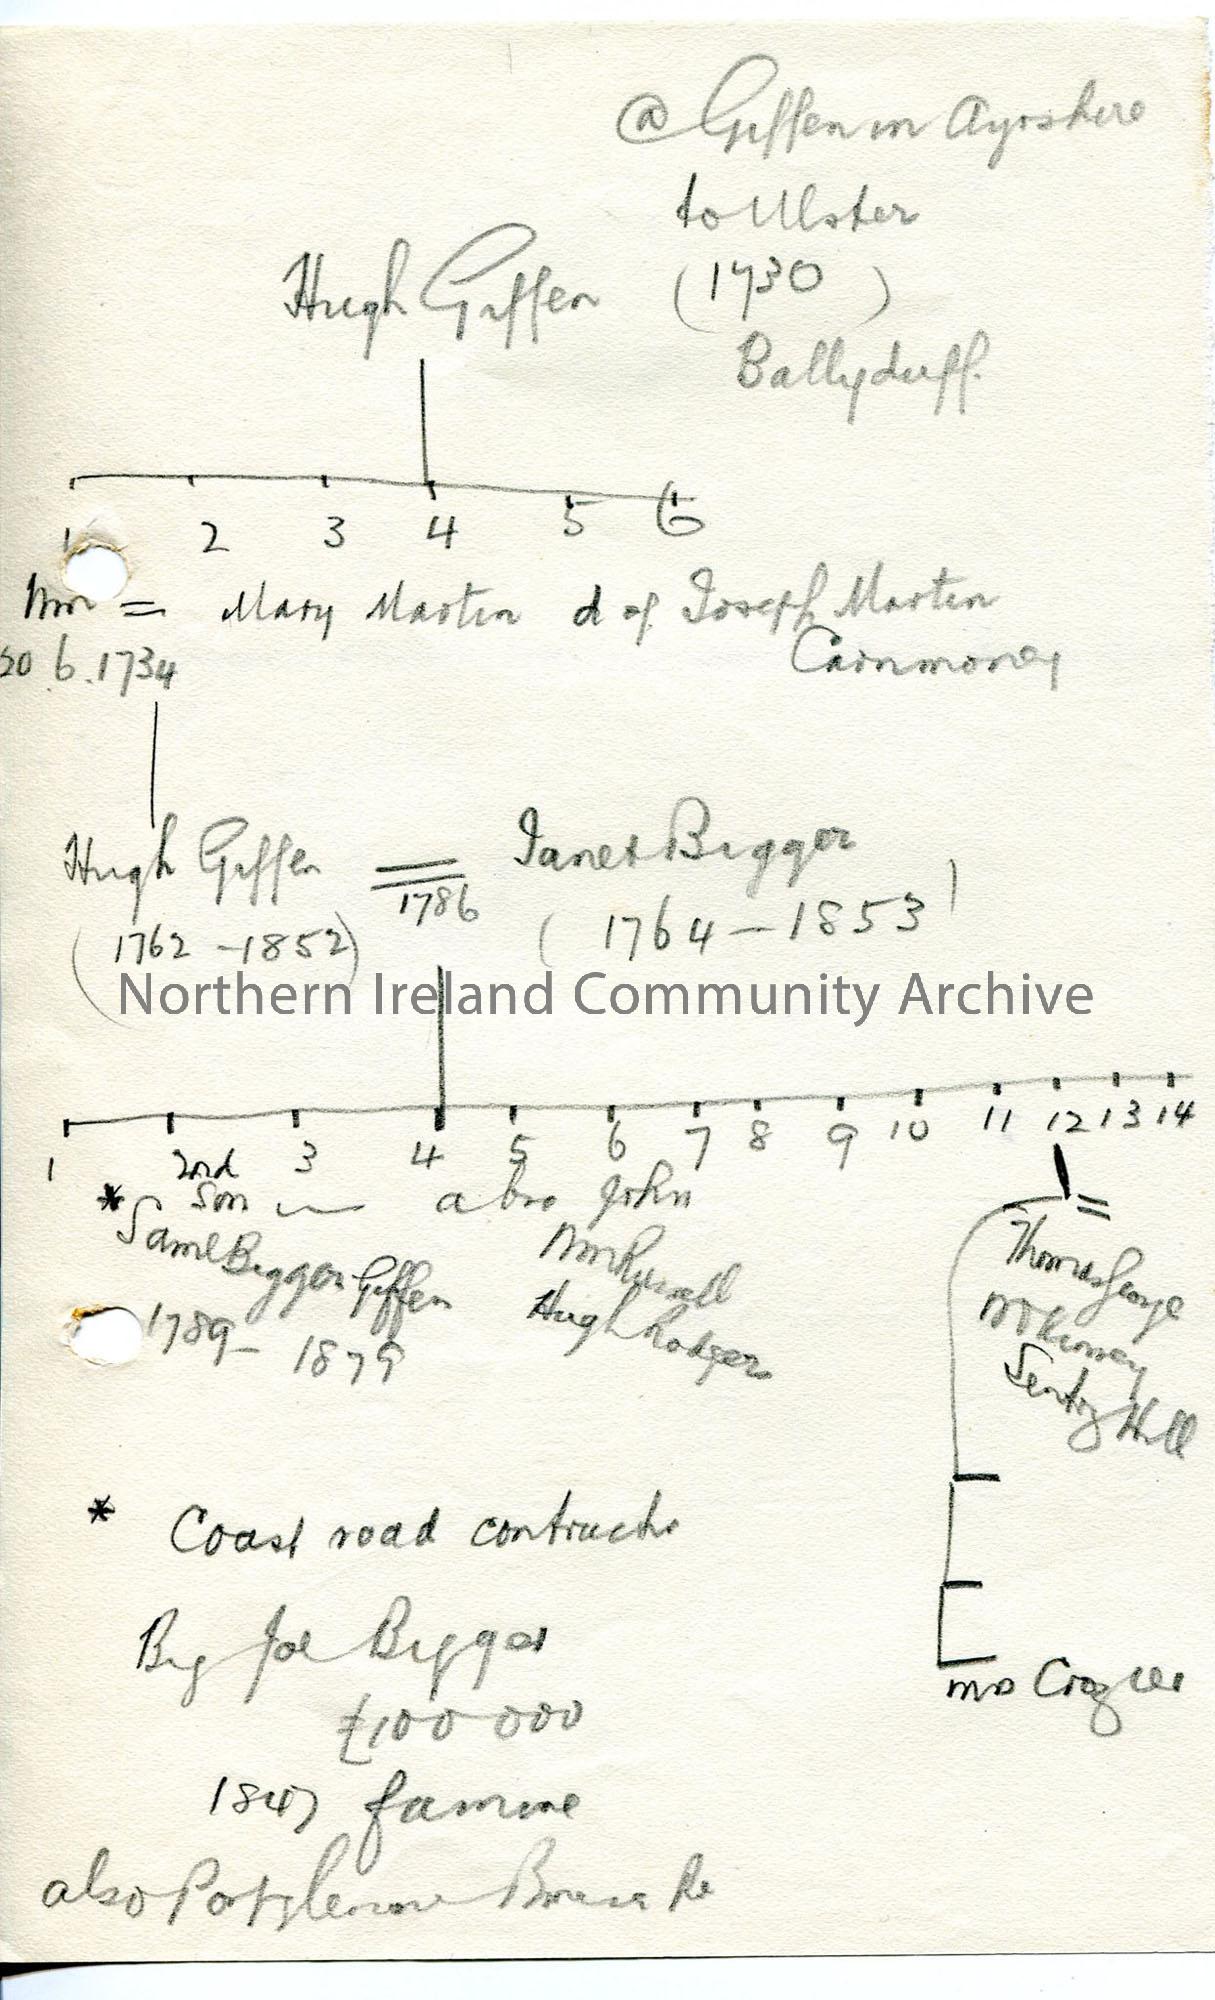 @ Giffen in Ayrshire
to Ulster
Hugh Giffen (1730)
Ballyduff.
1 2 3 4 5 6
Wm = Mary Martin d of Joseph Martin
Carnmoney
20.6.1734
Hugh Giffen = Janet Bigger
1786
(1762 - 1852) (1764 - 1853)
Northern Ireland Community Archive
1 2nd 3 4 5 6 7 8 9 10 11 12 13 14
* Son — also John
Saml Bigger Giffen
Wm Russell
Hugh Rodgers
1789 - 1879
=
Thomas George
McKinney
Sentry Hill
* Coast road contractor
Big Joe Bigger
£100 000
Mrs Crozier
1847 famine
also Portglenone